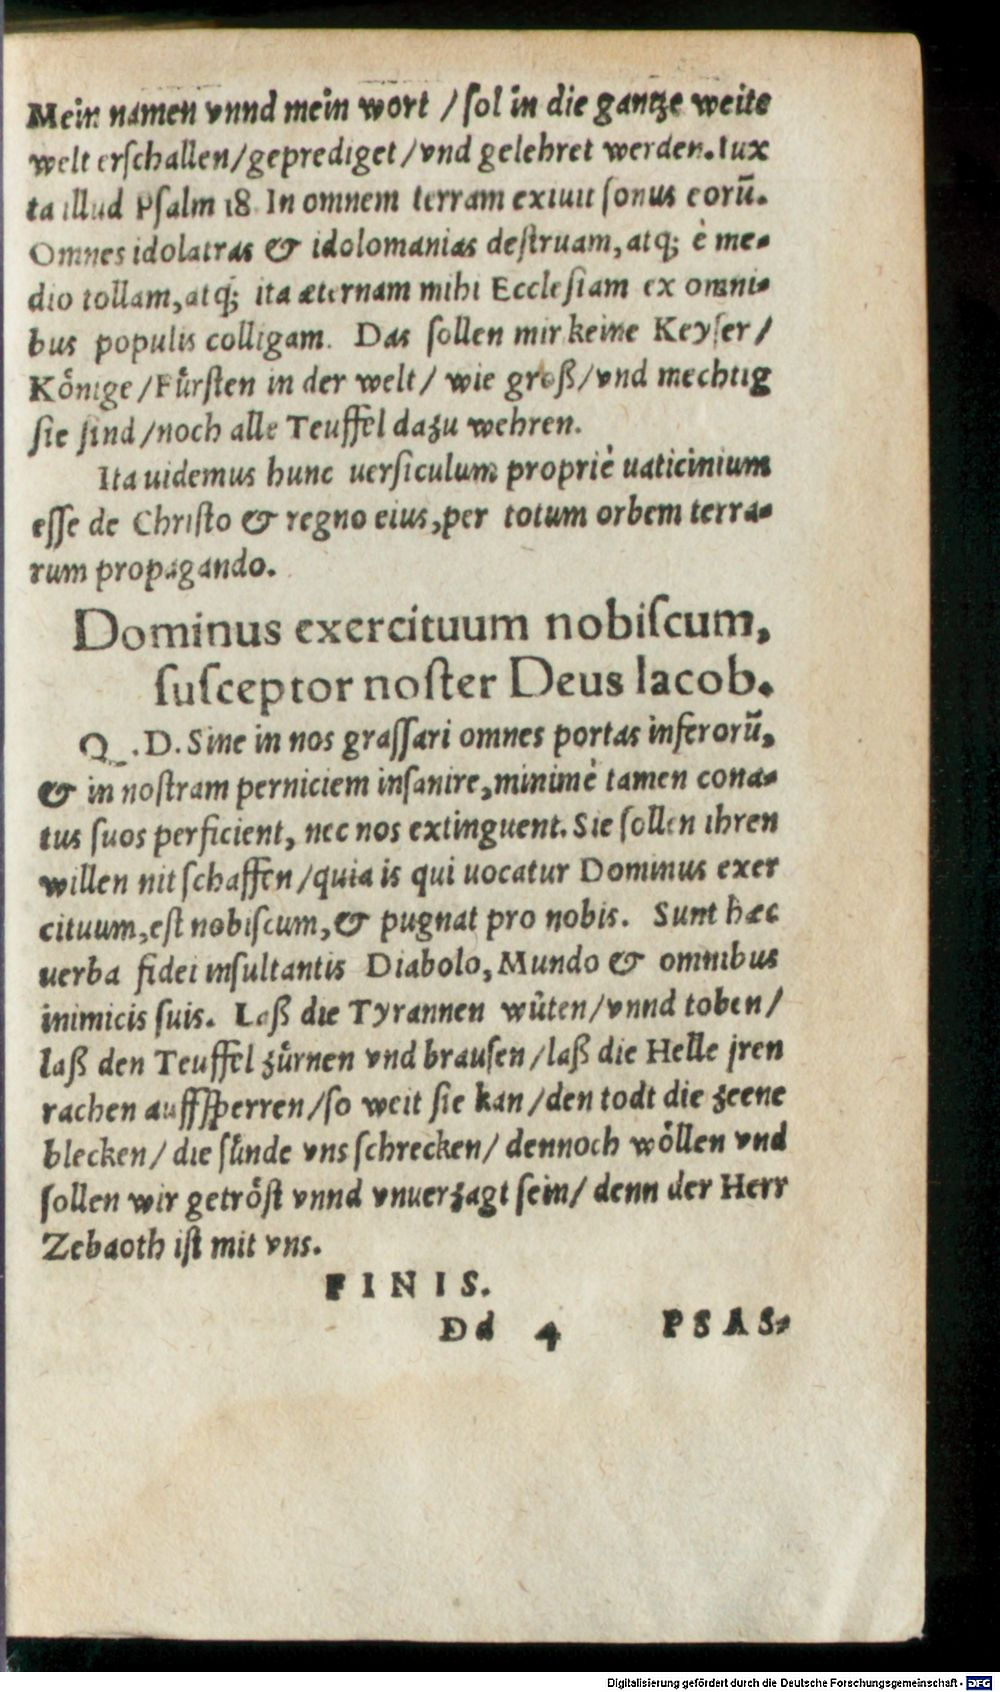 Mein namen vnnd mein wort / ſol in die gantze weite
welt erſchallen/geprediget/vnd gelehret werden. Iux
ta illud Pſalm 18. In omnem terram exiuit ſonus eorū.
Omnes idolatras & idolomanias deſtruam, atq; è me-
dio tollam, atq; ita æternam mihi Eccleſiam ex omni-
bus populis colligam. Das ſollen mir keine Keyſer/
Koͤnige/Fuͤrſten in der welt/ wie groß/vnd mechtig
ſie ſind/noch alle Teuffel dazu wehren.
Ita uidemus hunc uerſiculum propriè uaticinium
eſſe de Chriſto & regno eius, per totum orbem terra-
rum propagando.
Dominus exercituum nobiſcum,
ſuſceptor noſter Deus Iacob.
Q. D. Sine in nos graſſari omnes portas inferorū,
& in noſtram perniciem inſanire, minimè tamen cona-
tus ſuos perficient, nec nos extinguent. Sie ſollen ihren
willen nit ſchaffen/quia is qui uocatur Dominus exer
cituum, eſt nobiſcum, & pugnat pro nobis. Sunt hæc
uerba fidei inſultantis Diabolo, Mundo & omnibus
inimicis ſuis. Laß die Tyrannen wuͤten/vnnd toben/
laß den Teuffel zuͤrnen vnd brauſen/laß die Helle jren
rachen auffſperren/so weit ſie kan/den todt die zeene
blecken/ die ſuͤnde vns ſchrecken/ dennoch woͤllen vnd
ſollen wir getroͤſt vnnd vnuerzagt ſein/ denn der Herr
Zebaoth iſt mit vns.
FINIS.
Dd 4 PSAS-
Digitalisierung gefördert durch die Deutsche Forschungsgemeinschaft - DFG